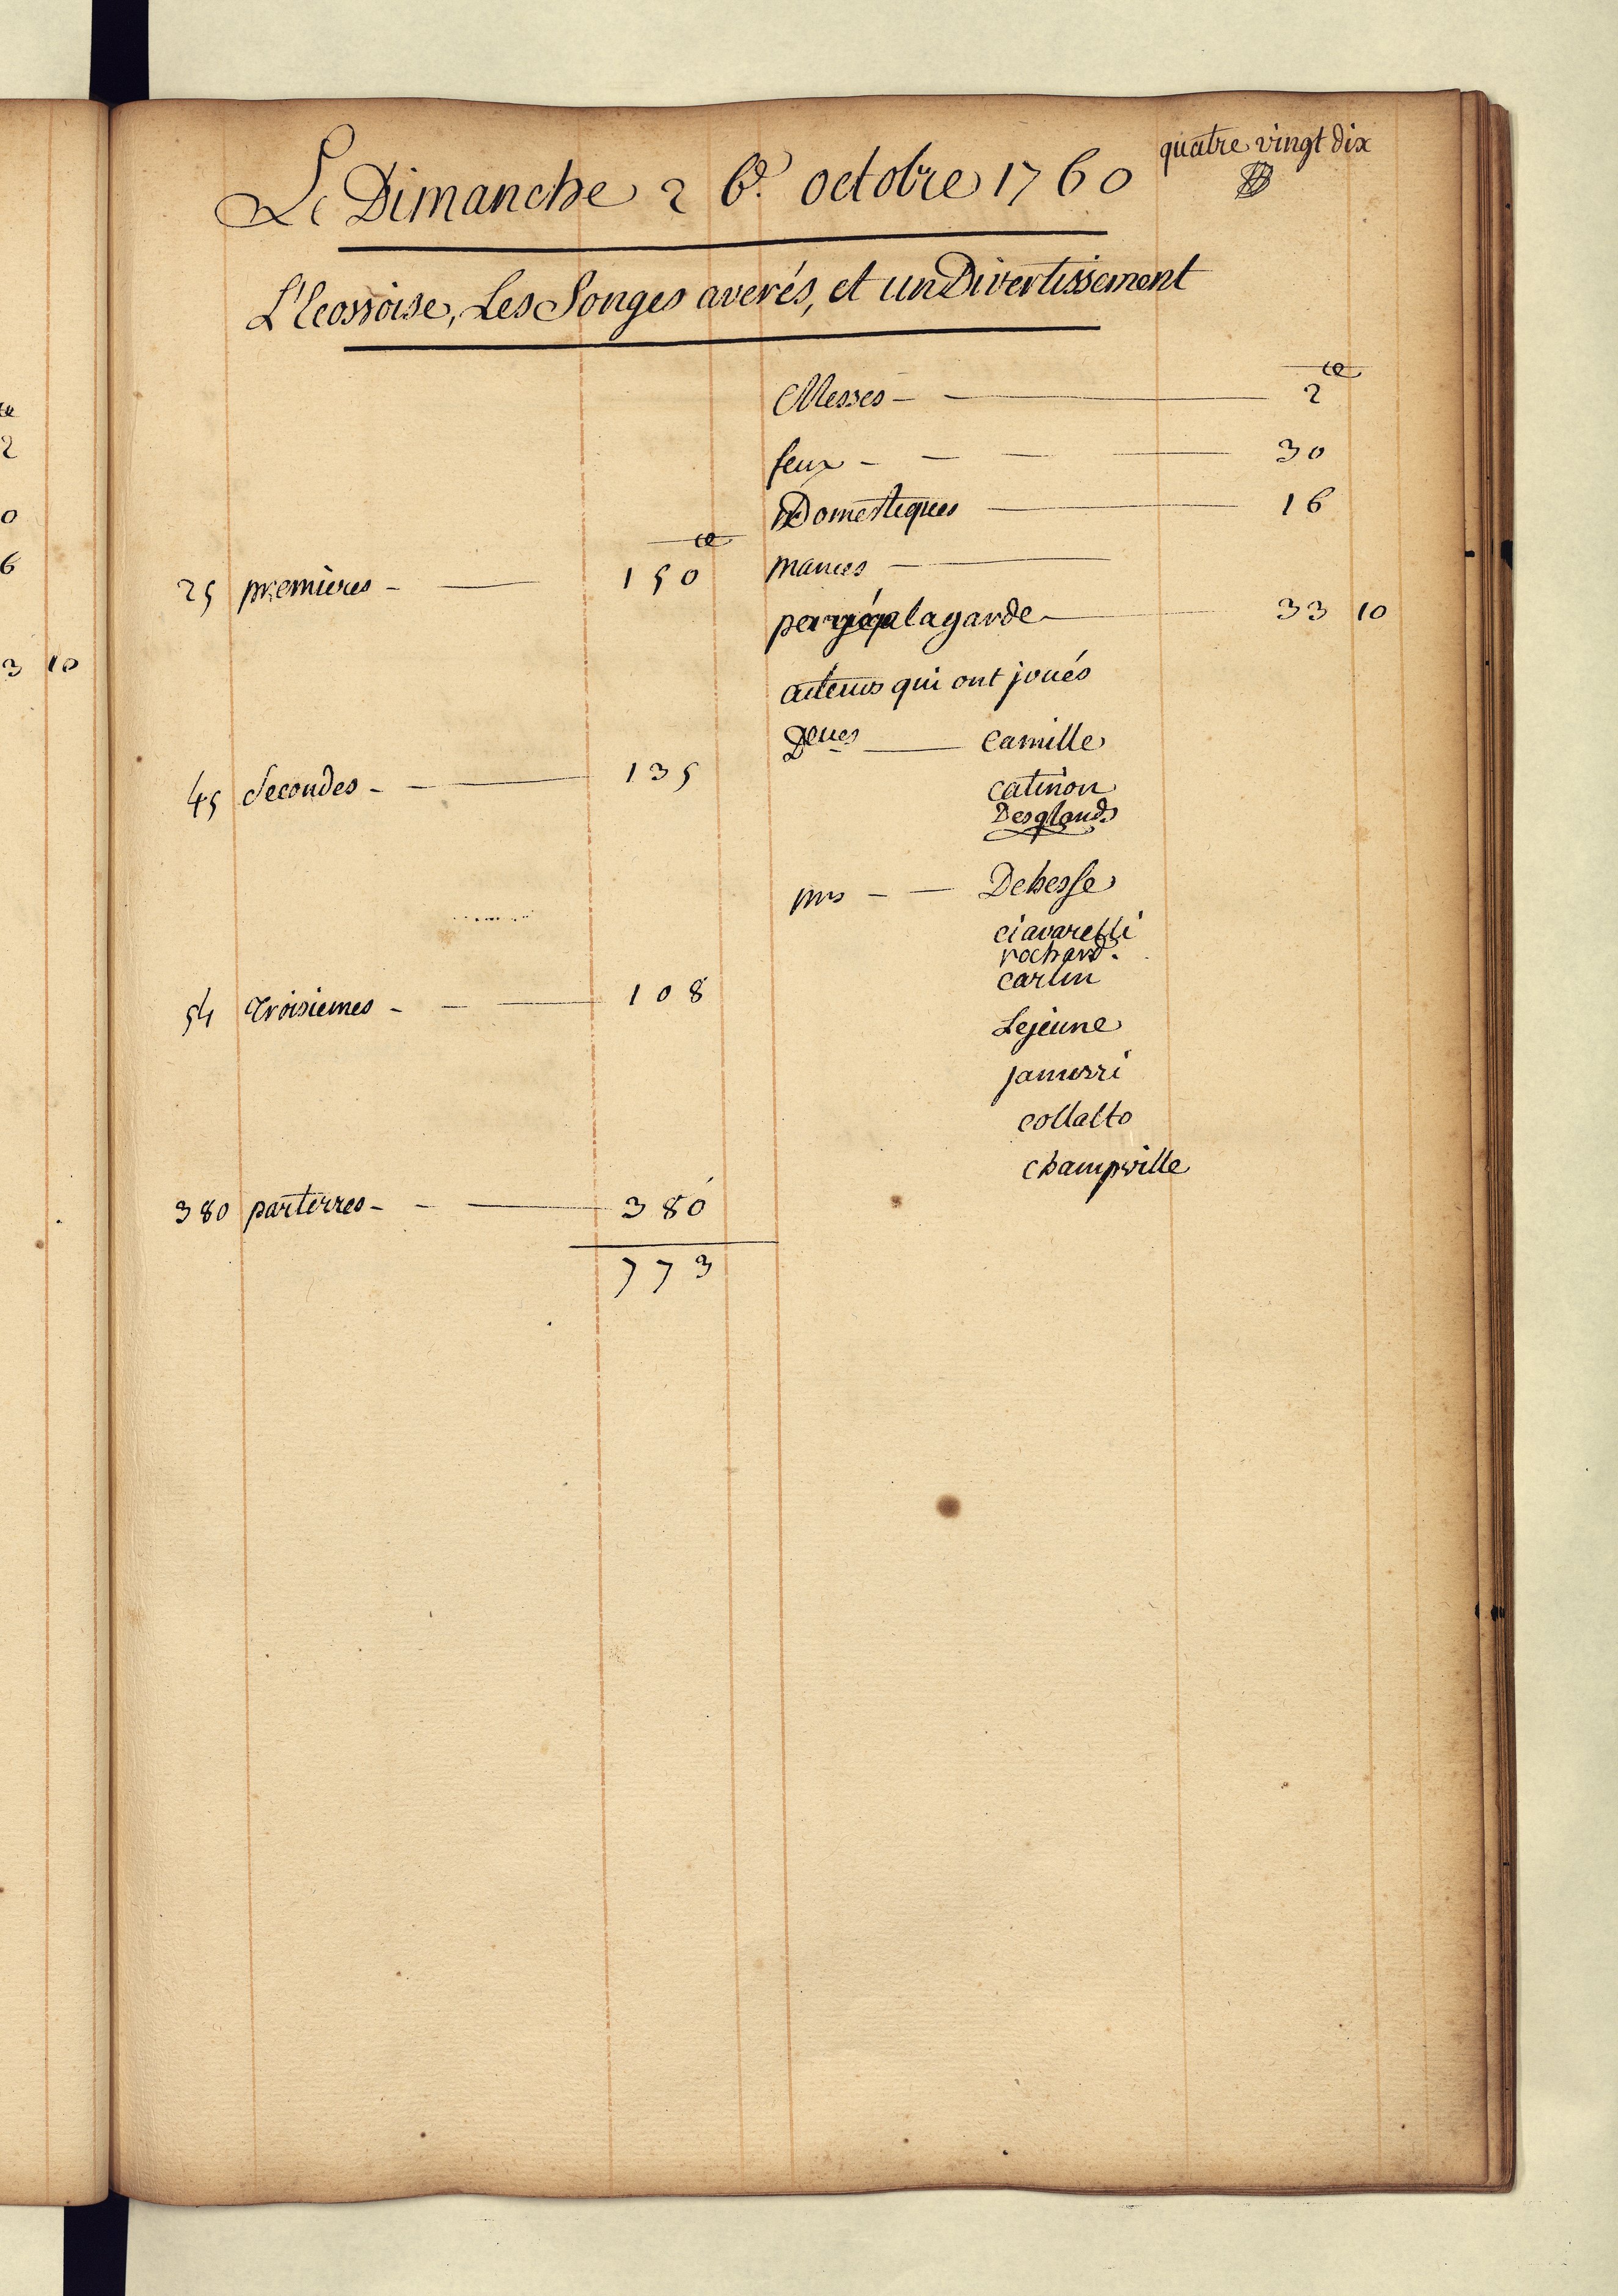 quatre vingt dix
Le Dimanche 26.e octobre 1760
L'Ecossoise, Les Songes averés, et un Divertissement
Messes - — 2
feux - — — — 30
Domestiques — 16
25 premieres - — 150
mances - —
payé a la garde — 33 10
acteurs qui ont joués
Delles — Camille
45 Secondes - — 135
catinon
Desglands
mrs - — Dehesse
ciavarelli
rochard.
carlin
54 Troisiemes - — 108
Lejeune
collalto
champville
380 parterres - — 380
773
2
0
6
3 10